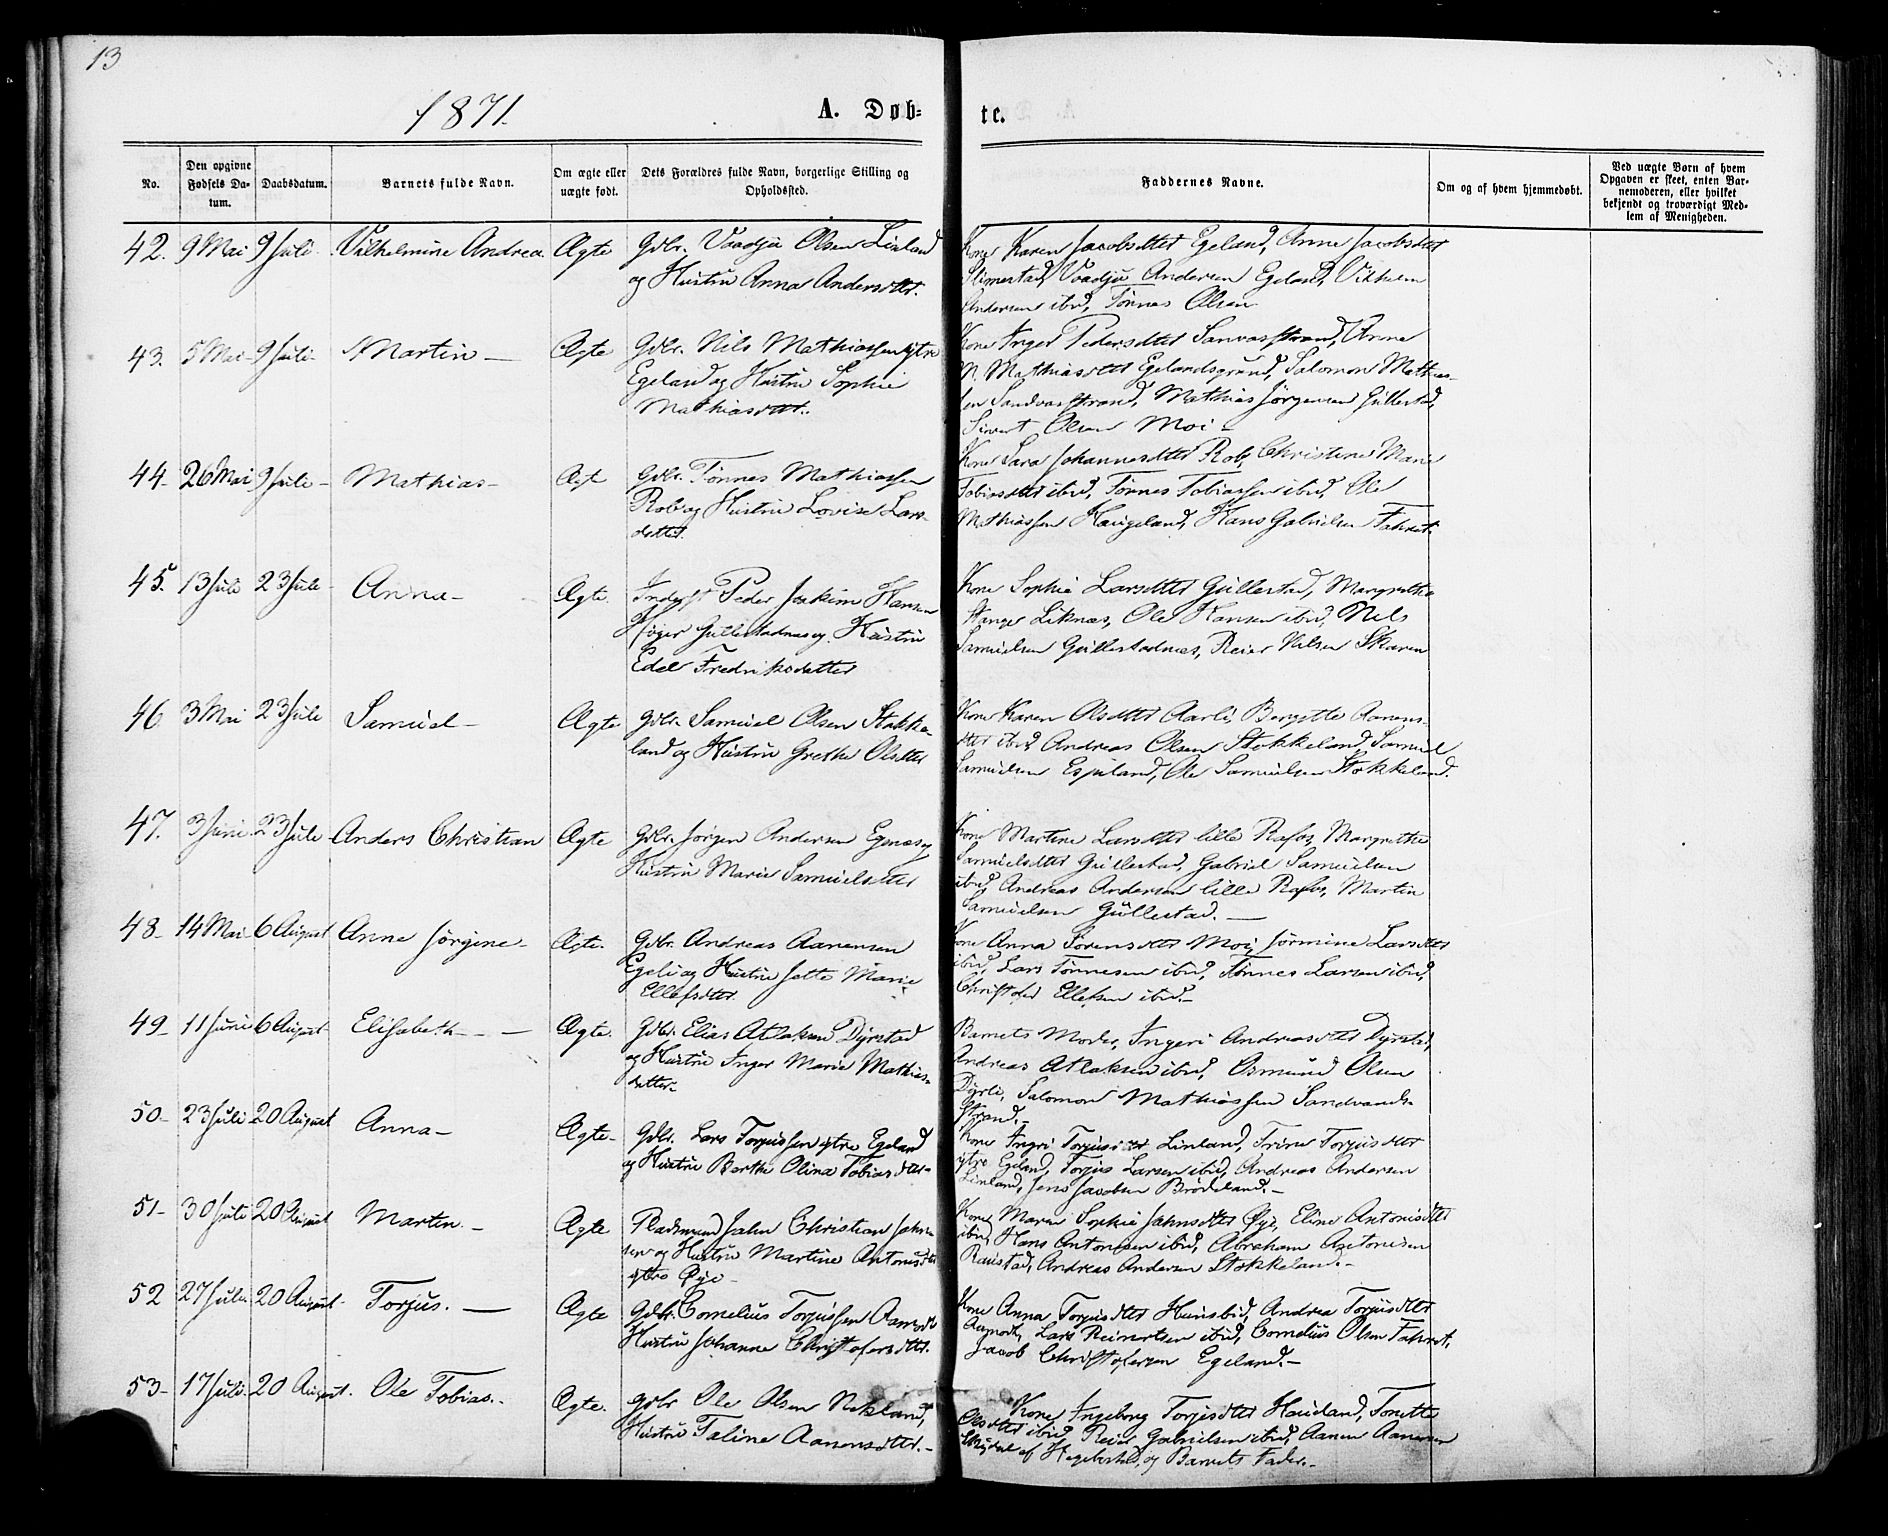 13
1871.
A. Døb-
te.
No.
Den opgivne Fødsels Da-tum.
Daabsdatum.
Barnets fulde Navn.
Om ægte eller uægte født.
Dets Forældres fulde Navn, borgerlige Stilling og Opholdssted.
Faddernes Navne.
Om og af hvem hjemmedøbt.
Ved uægte Børn af hvem Opgaven er skeet, enten Bar-nemoderen, eller hvilket bekjendt og troværdigt Med-lem af Menigheden.
42. 9 Mai 9 Juli Vilhelmine Andrea. Ægte
Gdbr. Vraadju Olsen Linland
og Hustru Anna Andersdtter.
Kone Karen Jacobsdtter Egeland, Anne Jacobsdtter
Slimestad, Vraadju Andersen Egeland, Vilhelm
Andersen ibid, Tönnes Olsen
43. 5 Mai 9 Juli Martin Ægte
Gdbr. Nils Mathiassen ytre
Egeland og Hustru Sophie
Mathiasdtt.
Kone Inger Pedersdtter Sanvasstrand, Anne
M. Mathiasdtter Egelandsgrund, Salomon Mathias-
sen Sandvasstrand, Mathias Jörgensen Gullestad,
Sivert Olsen Moi
44 26 Mai 9 Juli Mathias Ægt
Gdbr. Tönnes Mathiassen
Rob og Hustru Lovise Lars-
dtter.
Kone Sara Johannesdtter Rob, Christine Marie
Tobiasdtter ibid, Tönnes Tobiassen ibid, Ole
Mathiassen Haugeland, Hans Gabrielsen Fahret.
45. 13 Juli 23 Juli Anna Ægte.
Inderst Peder Joakim Hansen
Höyer Gullestadnes og Hustru
Edel Fredriksdatter
Kone Sophie Larsdtter Gullestad, Margrethe
Stanger Liknæs, Ole Hansen ibid, Nels
Samuelsen Gullestadnes, Reier Nilsen Skaren
46 3 Mai 23 Juli Samuel Ægte
Gdbr. Samuel Olsen Stokke-
land og Hustru Grethe Olsdtter
Kone Karen Olsdtter Aarli, Bergitte Aanens-
dtter ibid, Andreas Olsen Stokkeland, Samuel
Samuelsen Espeland, Ole Samuelsen Stokkeland.
47. 3 Juni 23 Juli Anders Christian Ægte
Gdbr. Jörgen Andersen Egenes og
Hustru Marie Samuelsdtter
Kone Martine Larsdtter lille Rafos, Margrethe
Samuelsdtter Gullestad, Gabriel Samuelsen
ibid, Andreas Andersen lille Rafos, Martin
Samuelsen Gullestad.
48 14 Mai 6 August Anne Jörgine Ægte.
Gdbr. Andreas Aanensen
Egeli og Hustru Jette Marie
Ellefsdtter.
Kone Anna Sörensdtter Moi, Jörmine Larsdtter
ibid, Lars Tönnesen ibid, Tönnes Larsen ibid,
Christofer Ellefsen ibid.
49 11 Juni 6 August Elisabeth Ægte.
Gdbr. Elias Atlaksen Dyrstad
og Hustru Inger Marie Mathias-
datter
Barnets Moder, Ingeri Andreasdtter Dyrstad,
Andreas Atlaksen ibid, Osmund Olsen
Dyrli, Salomon Mathiassen Sandvands-
strand.
50 23 Juli 20 August Anna Ægte
Gdbr. Lars Torjussen ytre Egeland
og Hustru Barthe Olina Tobiasdtter
Kone Ingri Torjusdtter Linland, Trine Torjusdtter
ytre Egeland, Torjus Larsen ibid, Andreas Andersen
Linland, Jens Jacobsen Brödeland.
51 30 Juli 20 August Martin Ægte
Pladsmand John Christian John-
sen og Hustru Martine Antonisdtter
ytre Öye
Kone Maria Sophie Johnsdtter Öye, Eline Antonisdtter
ibid, Hans Antonisen ibid, Abraham Antonisen
Raustad, Andreas Andersen Stokkeland.
52 27 Juli 20 August Torjus. Ægte
Gdbr. Cornelius Torjussen
Hustru Johanne Christofersdtter.
Kone Anna Torjusdtter Hunsbid, Andrea Torjusdtter
Aamodt, Lars Reinertsen ibid, Cornelius Olsen Fahret,
Jacob Christofersen Egeland.
53 17 Juli 20 August. Ole Tobias. Ægte.
Gdbr Ole Olsen Nekland,
Hustru Taline Aanensdtter.
Kone Ingeborg Torjusdtter Hauland, Tonette
Olsdtter ibid, Reier Gabrielsen ibid, Aanen Aanensen
af Hegebostad, og Barnets Fader.